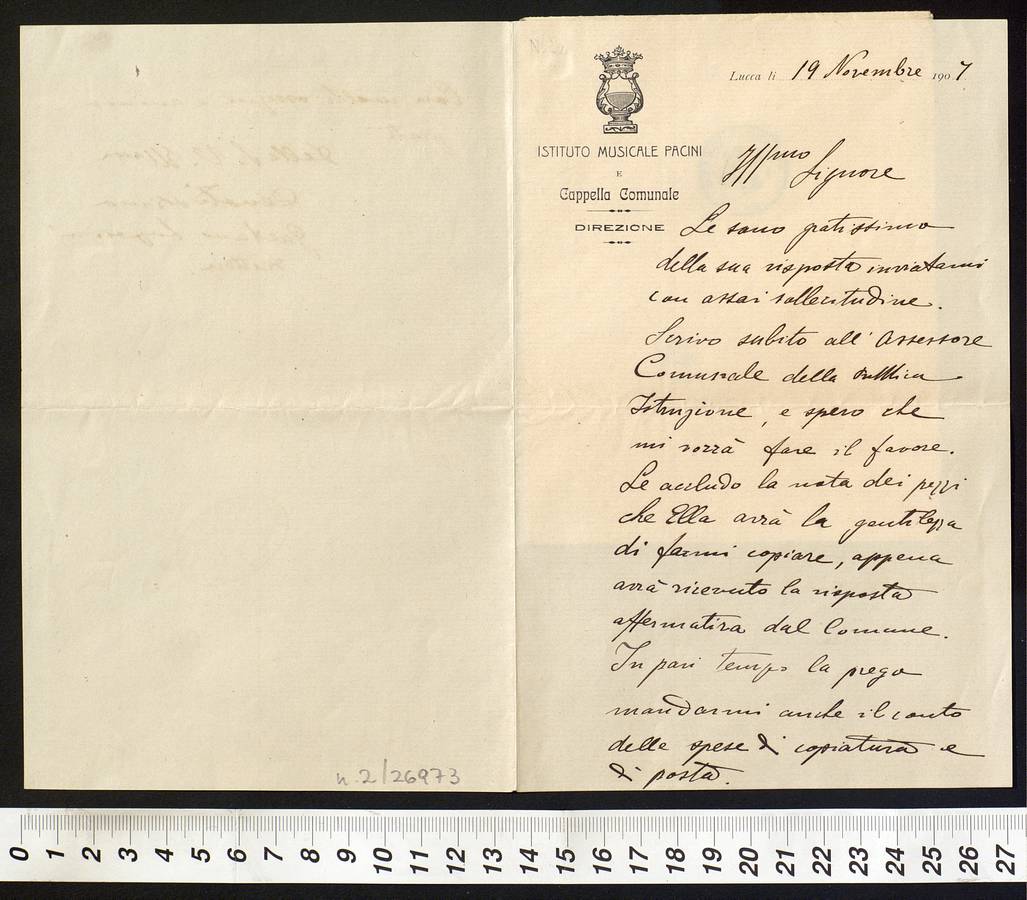 Lucca lì 19 Novembre 1907
ISTITUTO MUSICALE PACINI
E
Cappella Comunale
DIREZIONE
Illmo
Signore
Le sono gratissimo
della sua risposta inviatami
con assai sollecitudine.
Scrivo subito all'Assessore
Comunale della Pubblica
Istruzione, e spero che
mi vorrà fare il favore.
Le accludo la nota dei pezzi
che Ella avrà la gentilezza
di farmi copiare, appena
avrà ricevuto la risposta
affermativa dal Comune.
In pari tempo la prego
mandarmi anche il conto
delle spese di copiatura e
di posta.
n.2/26973
0 1 2 3 4 5 6 7 8 9 10 11 12 13 14 15 16 17 18 19 20 21 22 23 24 25 26 27